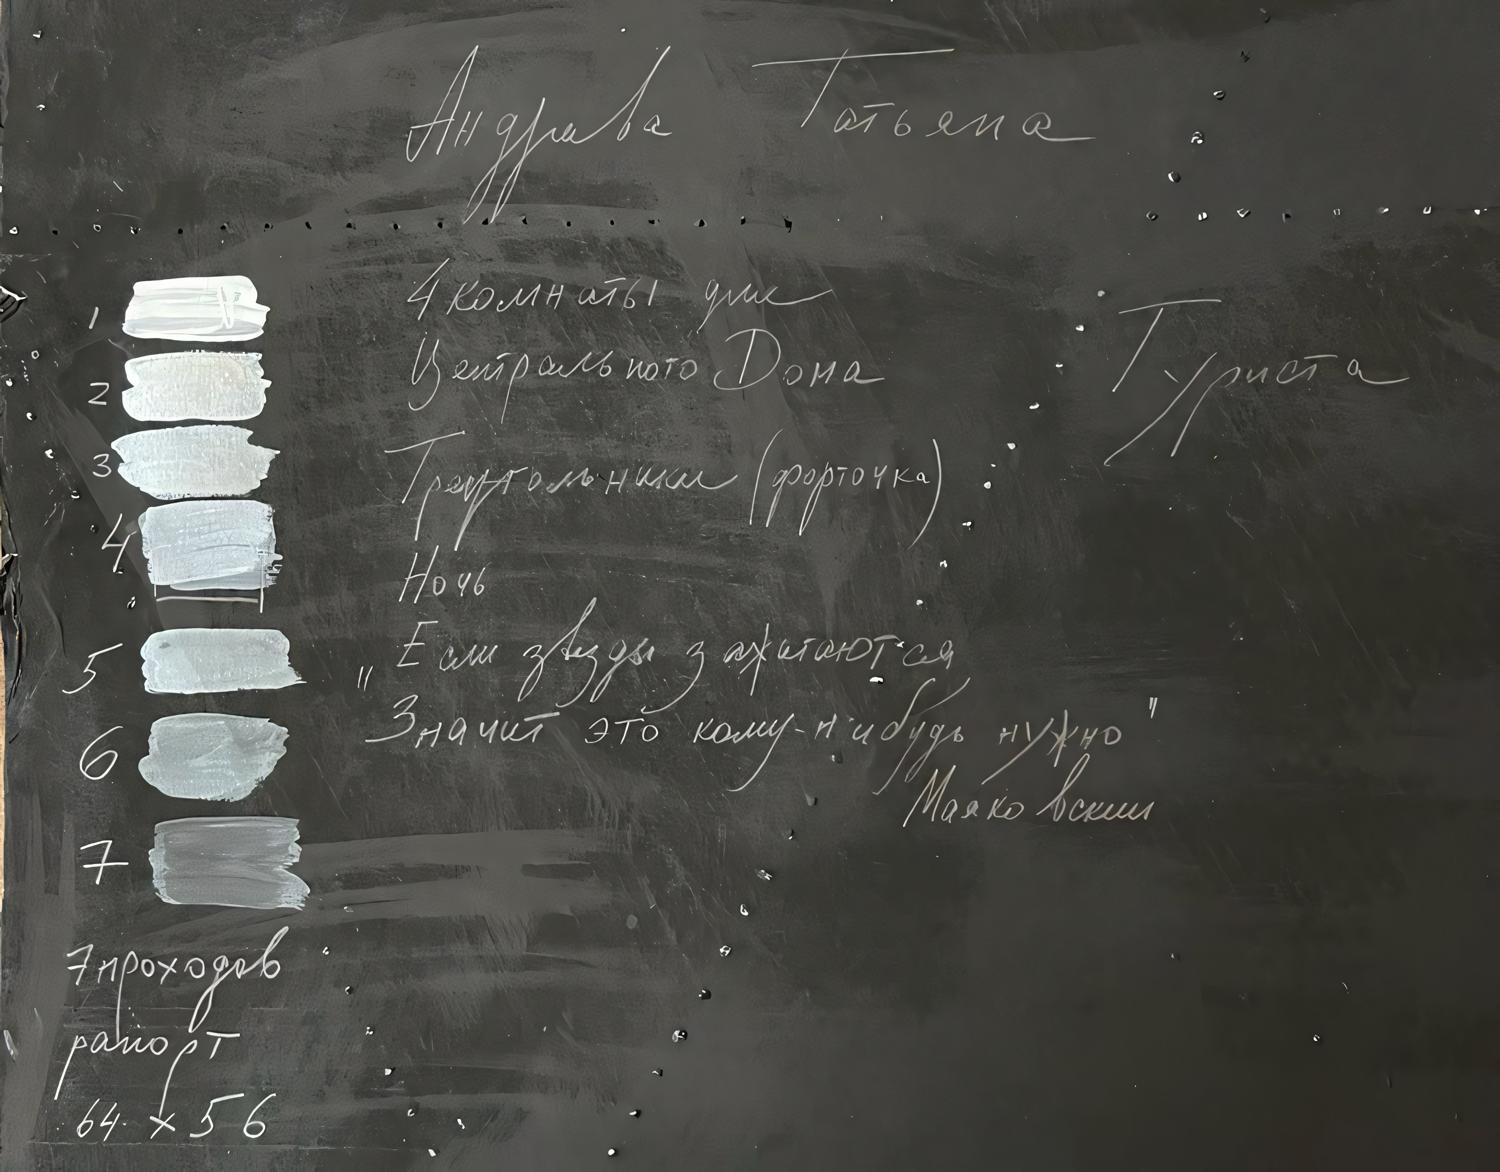 Андрава Татьяна
4 комнаты для
Центрального Дома Туриста
Треугольники (форточка)
Ночь
"Если звезды зажигаются
Значит это кому-нибудь нужно"
Маяковский
1
2
3
4
5
6
7
7 проходов
рапорт
64 x 56